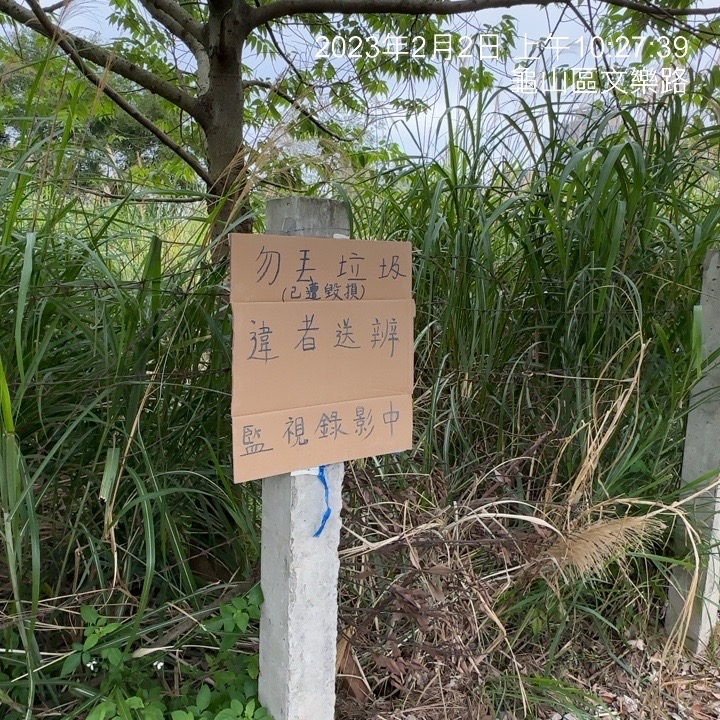 2023年2月2日 上午10:27:39
龜山區文樂路
勿丟垃圾
(已遭毀損)
違者送辨
監視錄影中